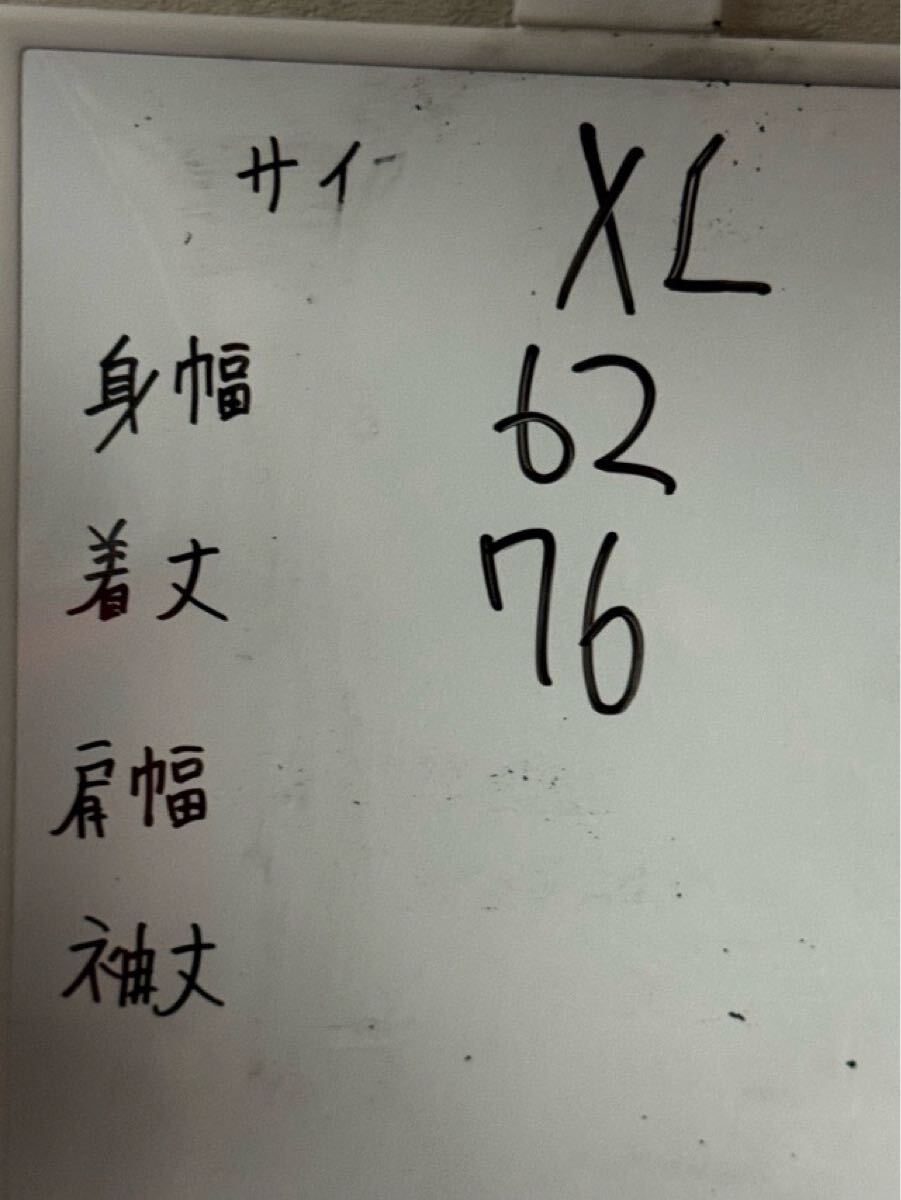 サイ XL
身幅 62
着丈 76
肩幅
袖丈